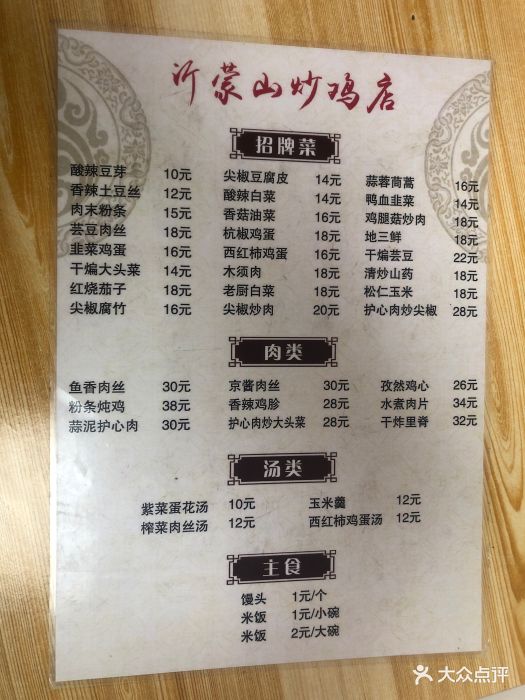 沂蒙山炒鸡店
招牌菜
酸辣豆芽 10元 尖椒豆腐皮 14元 蒜蓉茼蒿 16元
香辣土豆丝 12元 酸辣白菜 14元 鸭血韭菜 14元
肉末粉条 15元 香菇油菜 16元 鸡腿菇炒肉 18元
芸豆肉丝 18元 杭椒鸡蛋 18元 地三鲜 18元
韭菜鸡蛋 16元 西红柿鸡蛋 16元 干煸芸豆 22元
干煸大头菜 14元 木须肉 18元 清炒山药 18元
红烧茄子 18元 老厨白菜 18元 松仁玉米 18元
尖椒腐竹 16元 尖椒炒肉 20元 护心肉炒尖椒 28元
肉类
鱼香肉丝 30元 京酱肉丝 30元 孜然鸡心 26元
粉条炖鸡 38元 香辣鸡胗 28元 水煮肉片 34元
蒜泥护心肉 30元 护心肉炒大头菜 28元 干炸里脊 32元
汤类
紫菜蛋花汤 10元 玉米羹 12元
榨菜肉丝汤 12元 西红柿鸡蛋汤 12元
主食
馒头 1元/个
米饭 1元/小碗
米饭 2元/大碗
大众点评